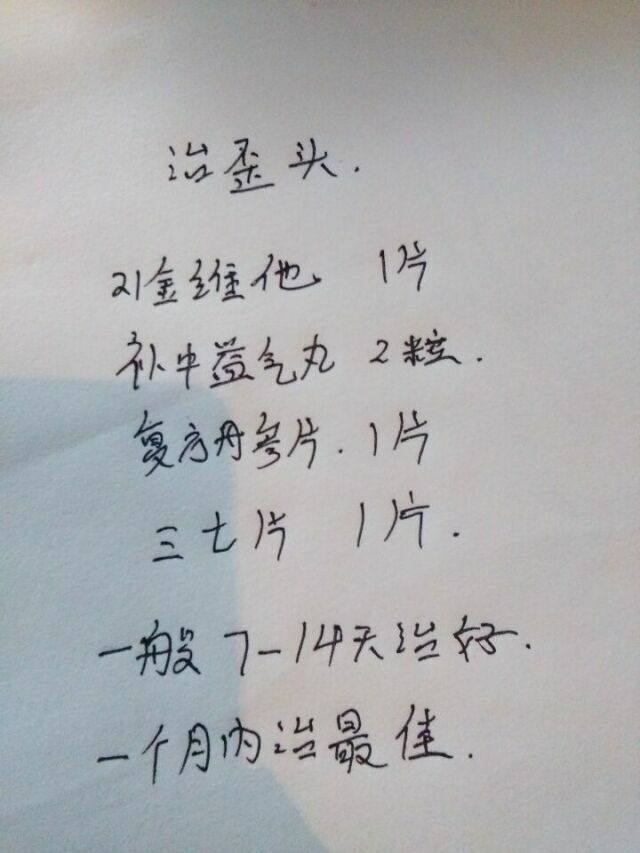 治歪头.
21金维他 1片
补中益气丸 2粒.
复方丹参片. 1片
三七片 1片.
一般7-14天治好.
一个月内治最佳.